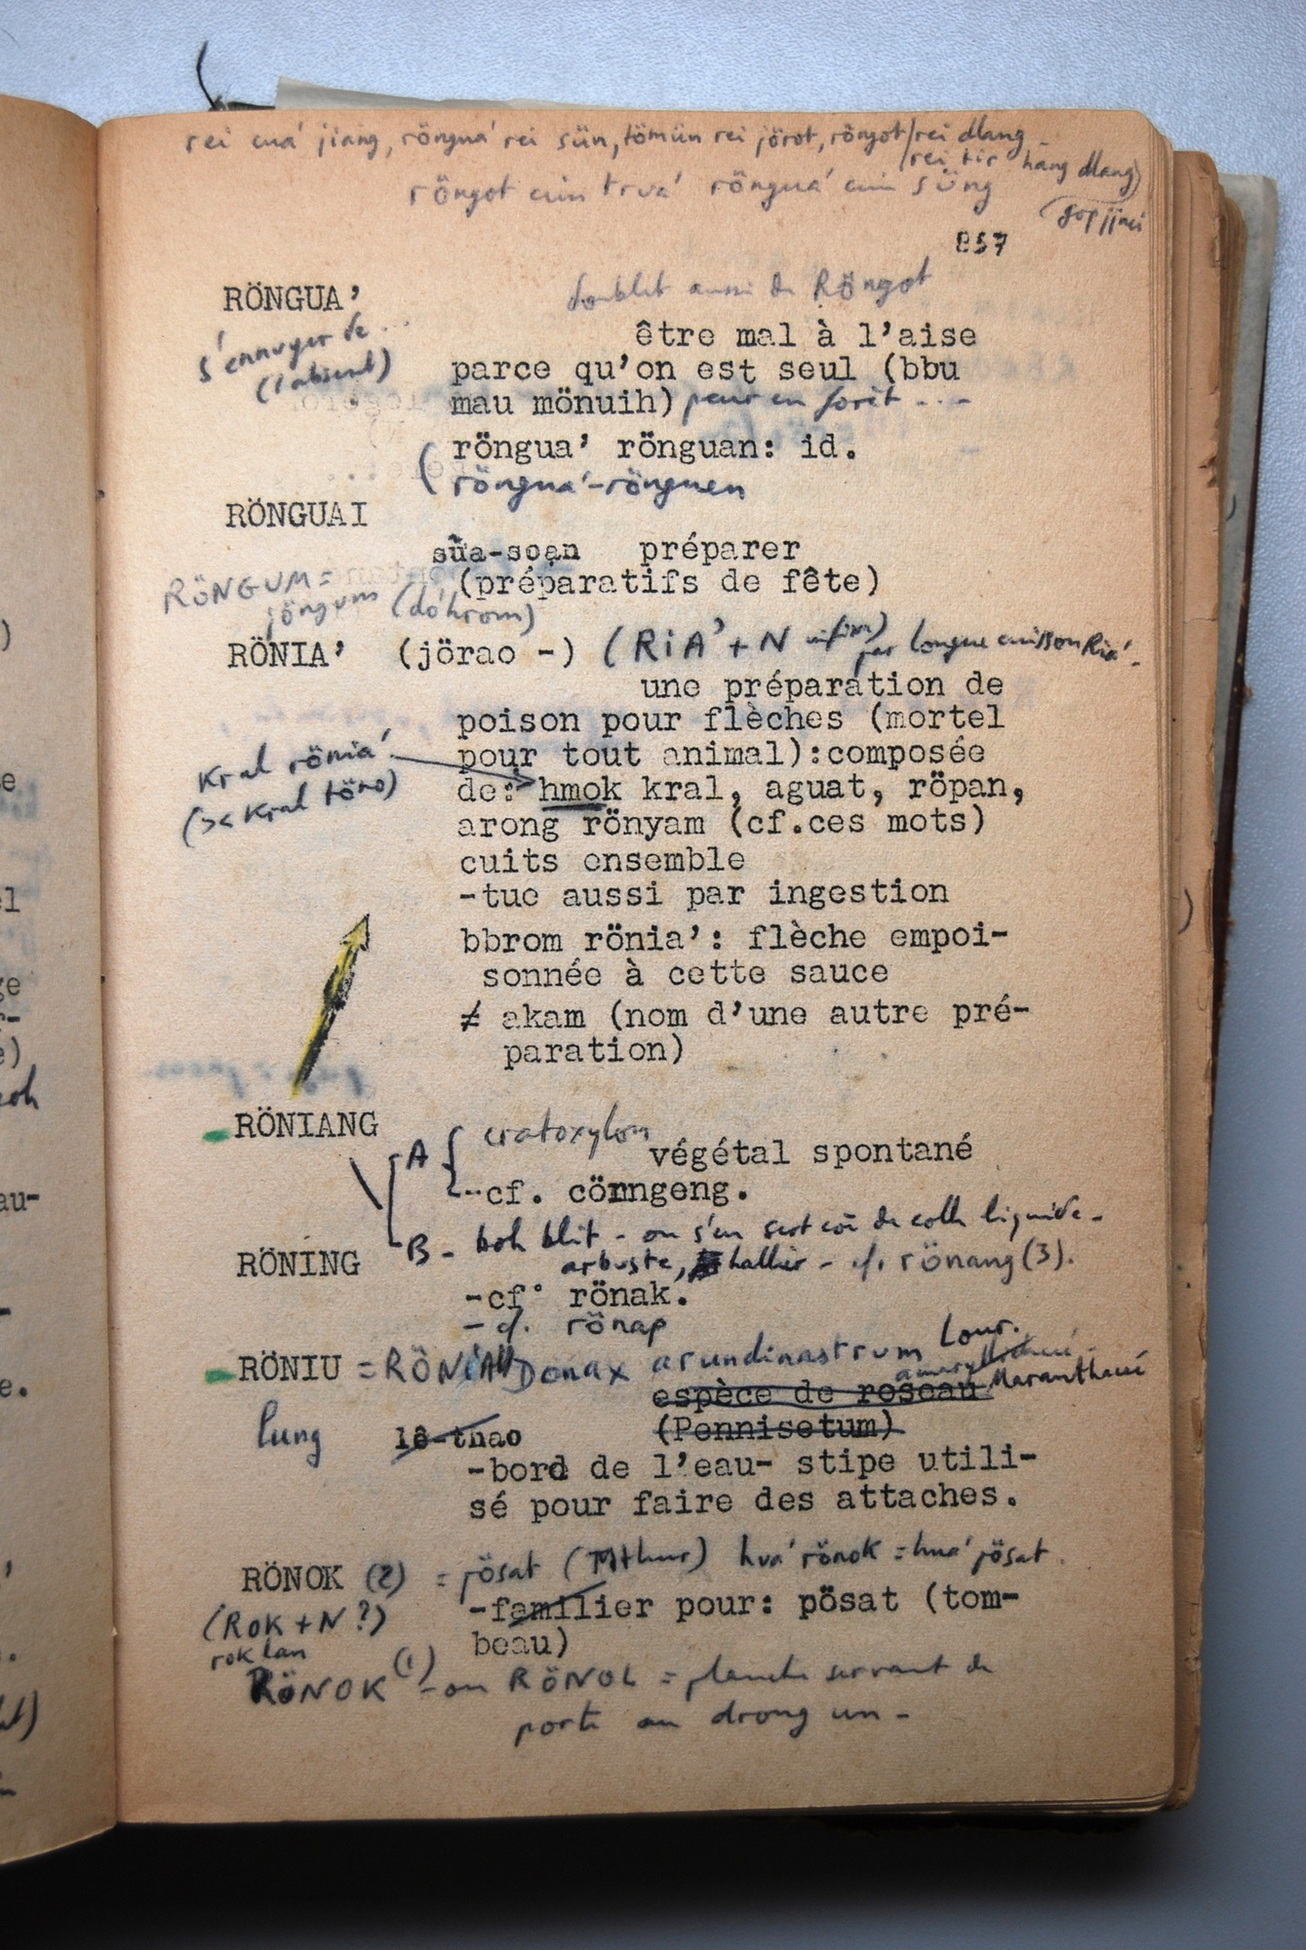 rei cuá jiang, röngua' rei sün, tömün rei jörot, röngot/rei dlang
rei tir hang dlang)
röngot cuin truá röngua' cuin süng
857
RÖNGUA’ doublet aussi de Röngot
s'ennuyer de...
(l'absent)
être mal à l’aise
parce qu’on est seul (bbu
mau mönuih) peur en forêt ...
röngua’ rönguan: id.
(röngua'-rönguen
RÖNGUAI
sữa-soạn préparer
(préparatifs de fête)
RÖNGUM =
jöngum (dóhrom)
RÖNIA’ (jörao -) (RIA'+N infixe) par longue cuisson Ria'.
une préparation de
poison pour flèches (mortel
pour tout animal):composée
Kral rönia'
(>< Kral töno)
de: hmok kral, aguat, röpan,
arong rönyam (cf.ces mots)
cuits ensemble
-tue aussi par ingestion
bbrom rönia’: flèche empoi-
sonnée à cette sauce
≠ akam (nom d’une autre pré-
paration)
RÖNIANG
A cratoxylon végétal spontané
-cf. cörngeng.
B - boh blit - on s'en sert cô de colle liquide -
arbuste, hallier - cf. rönang (3).
RÖNING
-cf° rönak.
- cf. rönap
RÖNIU = RÖNIAU Donax arundinastrum Lour.
Maranthacé
espèce de roseau
lung lê-thao (Pennisetum)
-bord de l’eau- stipe utili-
sé pour faire des attaches.
RÖNOK (2) = pösat (Mthur) hua' rönok = hua' pösat.
(ROK+N?)
rok lan
-familier pour: pösat (tom-
beau)
RÖNOK (1) - ou RÖNOL = planche servant de
porte au drong un -